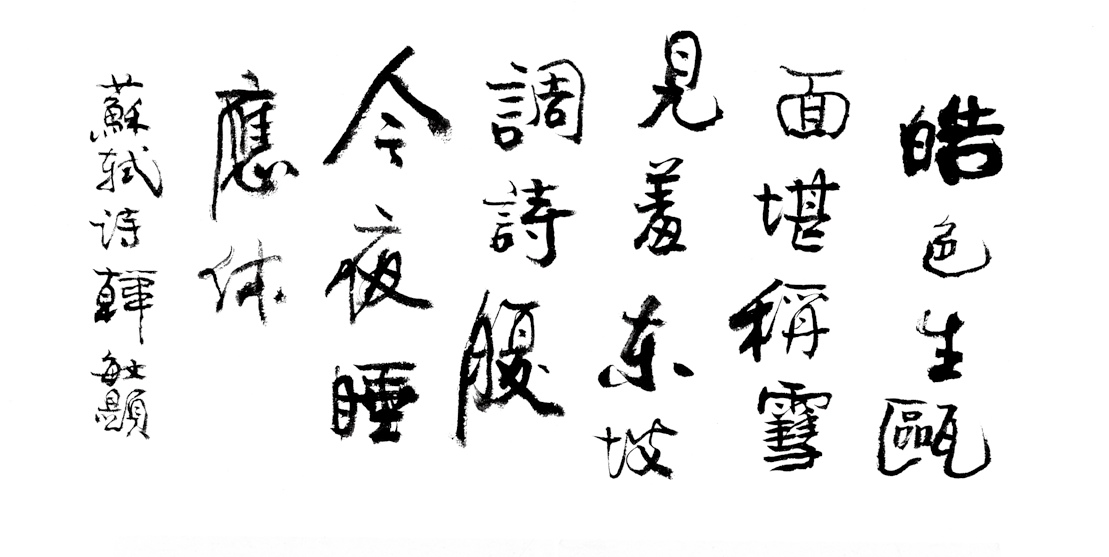 皓色生甌
面堪稱雪
見羞东坡
調詩腹
今夜睡
應休
蘇轼诗韓敏